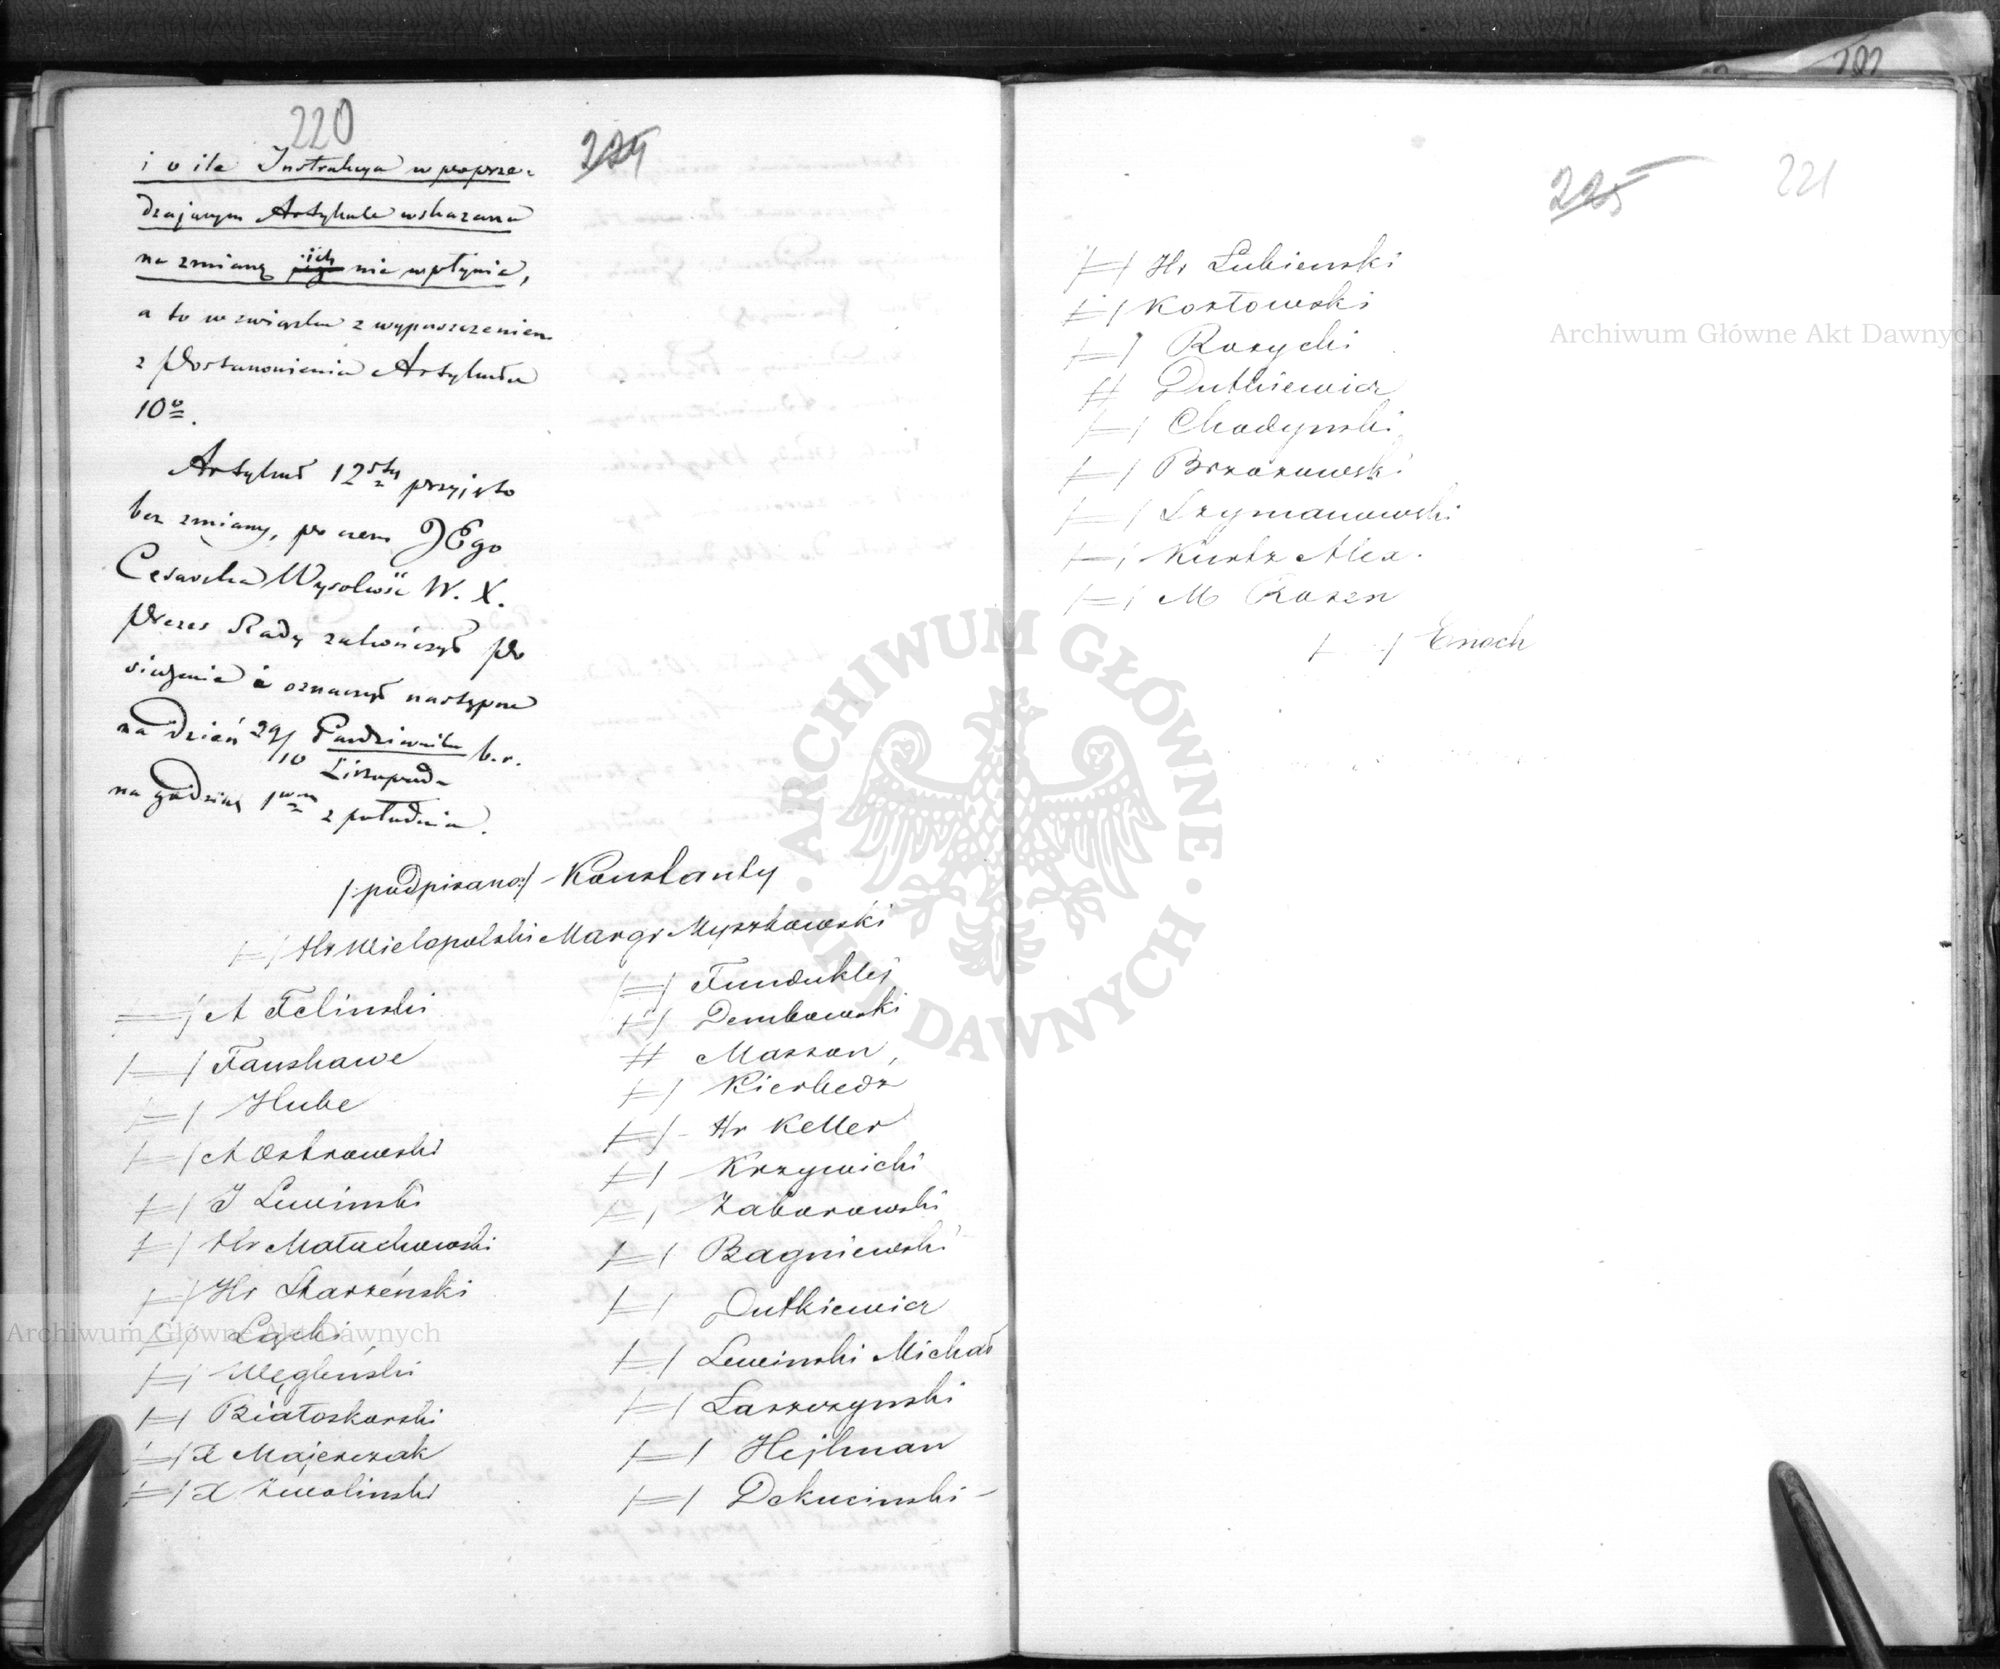 220
224
i o ile Instrukcya w poprze-
dzającym Artykule wskazana
na zmianę ich nie wpłynie,
a to w związku z wypuszczeniem
z Postanowienia Artykułu
10º.
Artykuł 12sty przyjęto
bez zmiany, po czem JEgo
Cesarska Wysokość W. X.
Prezes Rady zakończył po
siedzenie i oznaczył następne
na dzień 29/10 Października/Listopada b.r.
na godzinę 1wszą z południa.
/podpisano:/ - Konstanty
/=/ Hr Wielopolski Margr Myszkowski
/=/ A Feliński
/=/ Fanshawe
/=/ Hube
/=/ A Ostrowski
/=/ J Lewiński
/=/ Hr Małachowski
/=/ Hr Starzeński
/=/ Łącki
/=/ Węgleński
/=/ Białoskorski
/=/ X Majerczak
/=/ X. Zwoliński
/=/ Funduklej
/=/ Dembowski
// Masson,
/=/ Kierbedź
/=/ - Hr Keller
/=/ Krzywicki
/=/ Zaborowski
/=/ Bagniewski
/=/ Dutkiewicz
/=/ Lewinski Michał
/=/ Łaszczynski
/=/ Hejlman
/=/ Dekucinski -
222
225
221
/=/ Hr Łubienski
/=/ Kozłowski
/=/ Rozycki
// Dutkiewicz
/=/ Chodynski
/=/ Brzozowski
/=/ Szymanowski
/=/ Kurtz Alex.
/=/ M Rosen
/=/ Enoch
Archiwum Główne Akt Dawnych
Archiwum Główne Akt Dawnych
ARCHIWUM GŁÓWNE AKT DAWNYCH